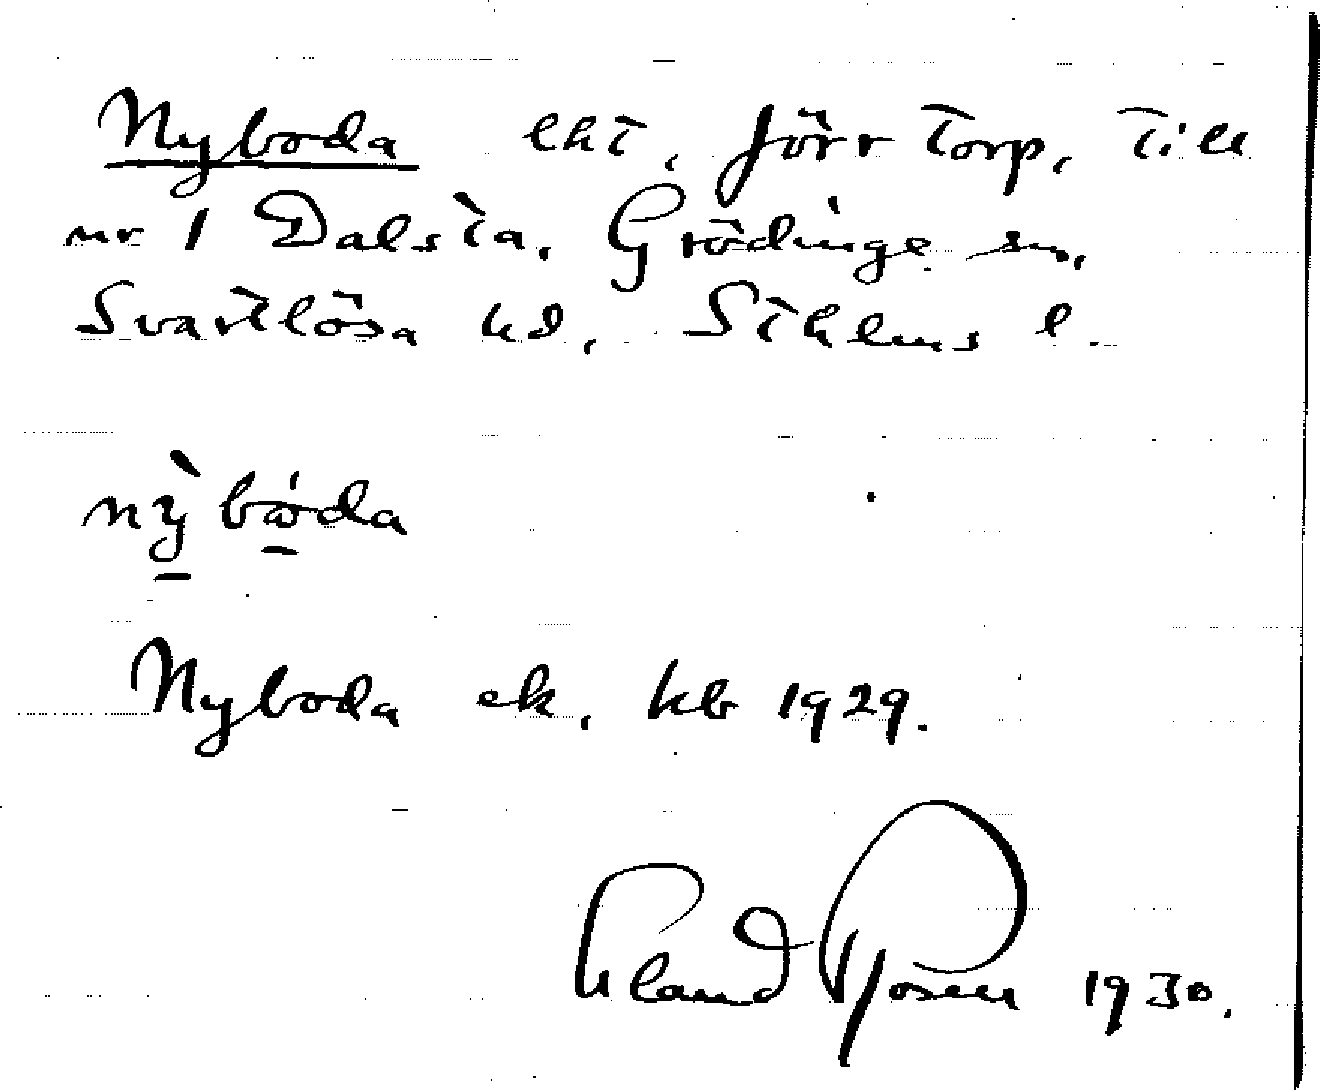 Nyboda lht, förr torp, till
nr 1 Dalsta, Grödinge sn,
Svartlösa hd, Sthlms l.
nỳbóda
Nyboda ek. kb 1929.
Erland Rosell 1930.